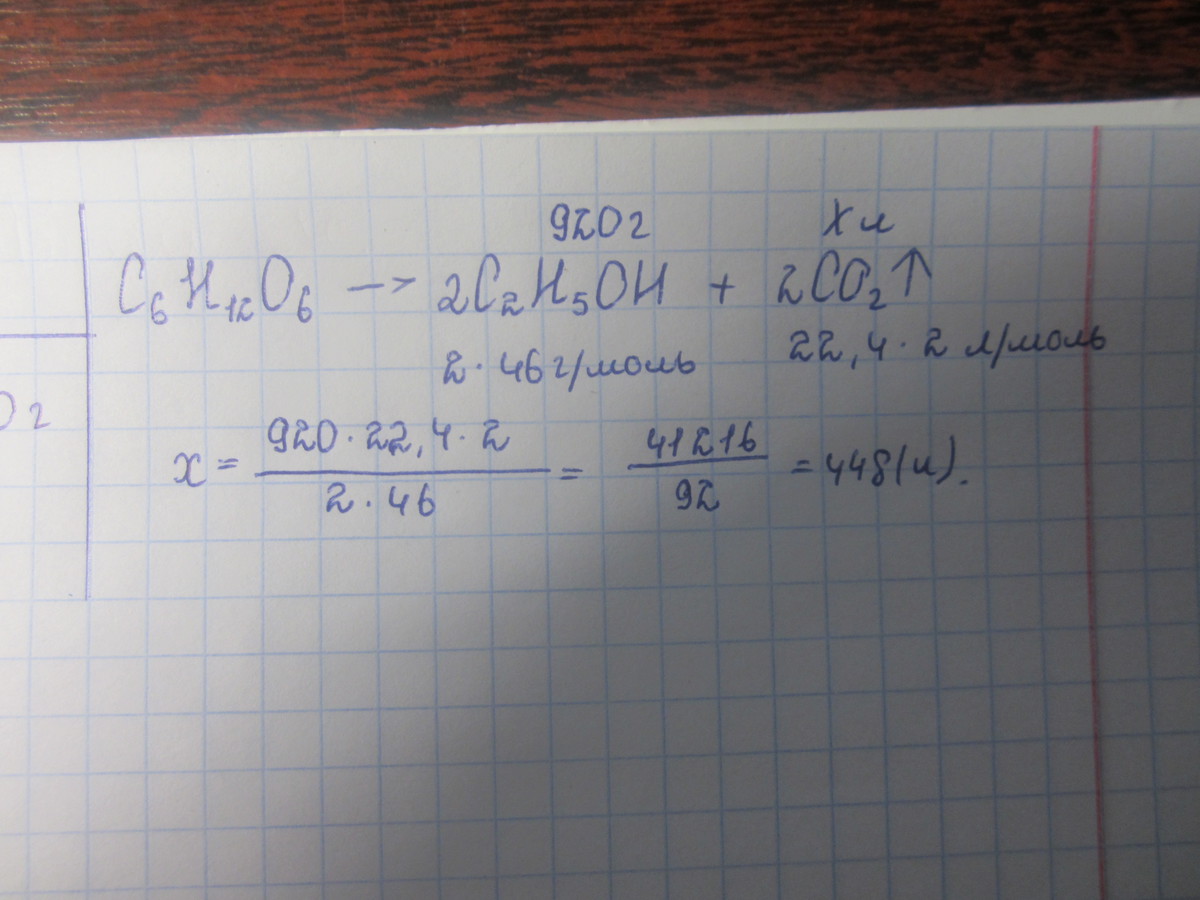 920 г Х л
C₆H₁₂O₆ —> 2C₂H₅OH + 2CO₂↑
2 · 46 г/моль 22,4 · 2 л/моль
0 г
x = 920 · 22,4 · 2 / 2 · 46 = 41216 / 92 = 448 (л).